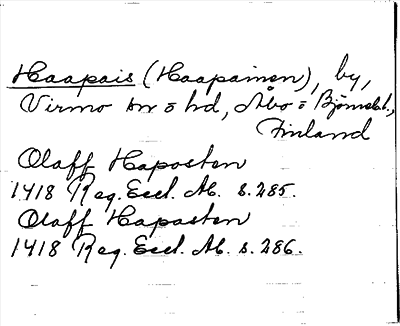 Haapais (Haapainen), by,
Virmo sn o hd, Åbo o Björneb.,
Finland
Olaff Haposten
1418 Reg. Eccl. Ab. s. 285.
Olaff Hapasten
1418 Reg. Eccl. Ab. s. 286.